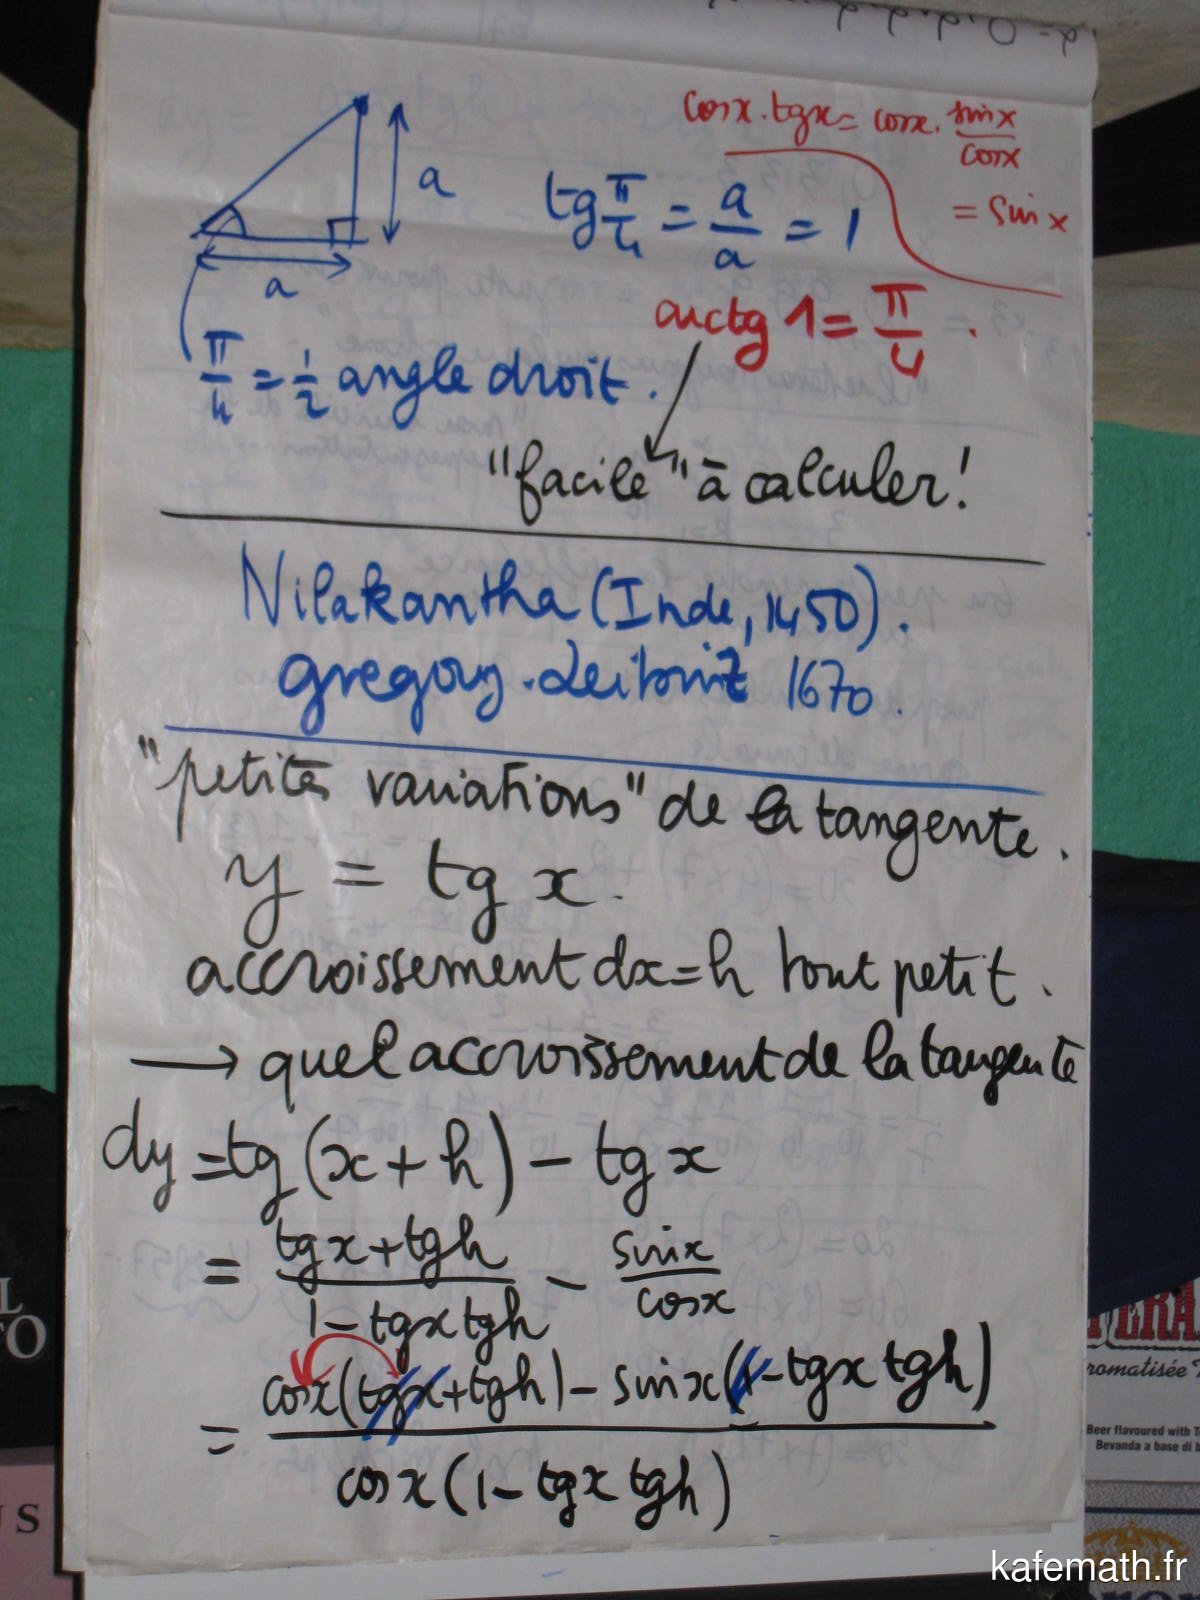 cosx.tgx = cosx. sinx/cosx
= sin x
a
a
tg π/4 = a/a = 1
arctg 1 = π/4 .
π/4 = 1/2 angle droit.
"facile" à calculer!
Nilakantha (Inde, 1450).
gregory.Leibniz 1670.
"petites variations" de la tangente.
y = tg x.
accroissement dx = h tout petit.
→ quel accroissement de la tangente
dy = tg(x + h) - tg x
= (tgx + tgh)/(1 - tgx tgh) - sinx/cosx
= (cosx(tgx + tgh) - sinx(1 - tgx tgh))/(cosx(1 - tgx tgh))
TERA
romatisée
Beer flavoured with T
Bevanda a base di b
kafemath.fr